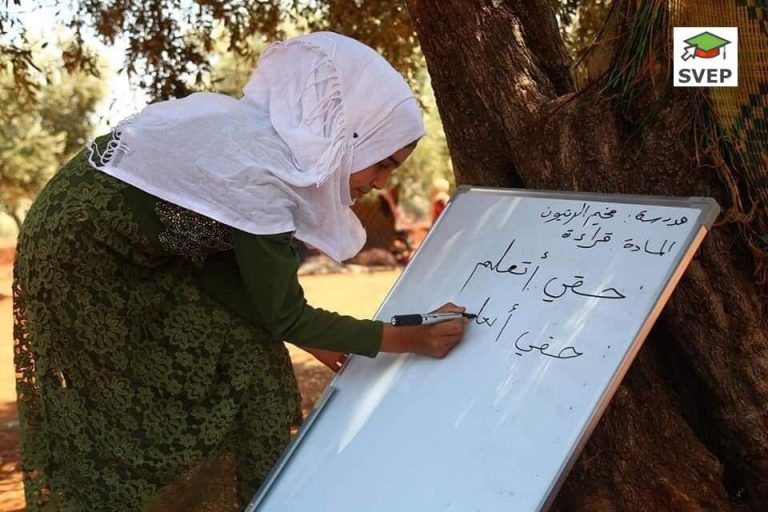 SVEP
مدرسة : مخيم الزيتون
المادة : قراءة
حقي أتعلم
حقي أتعلم